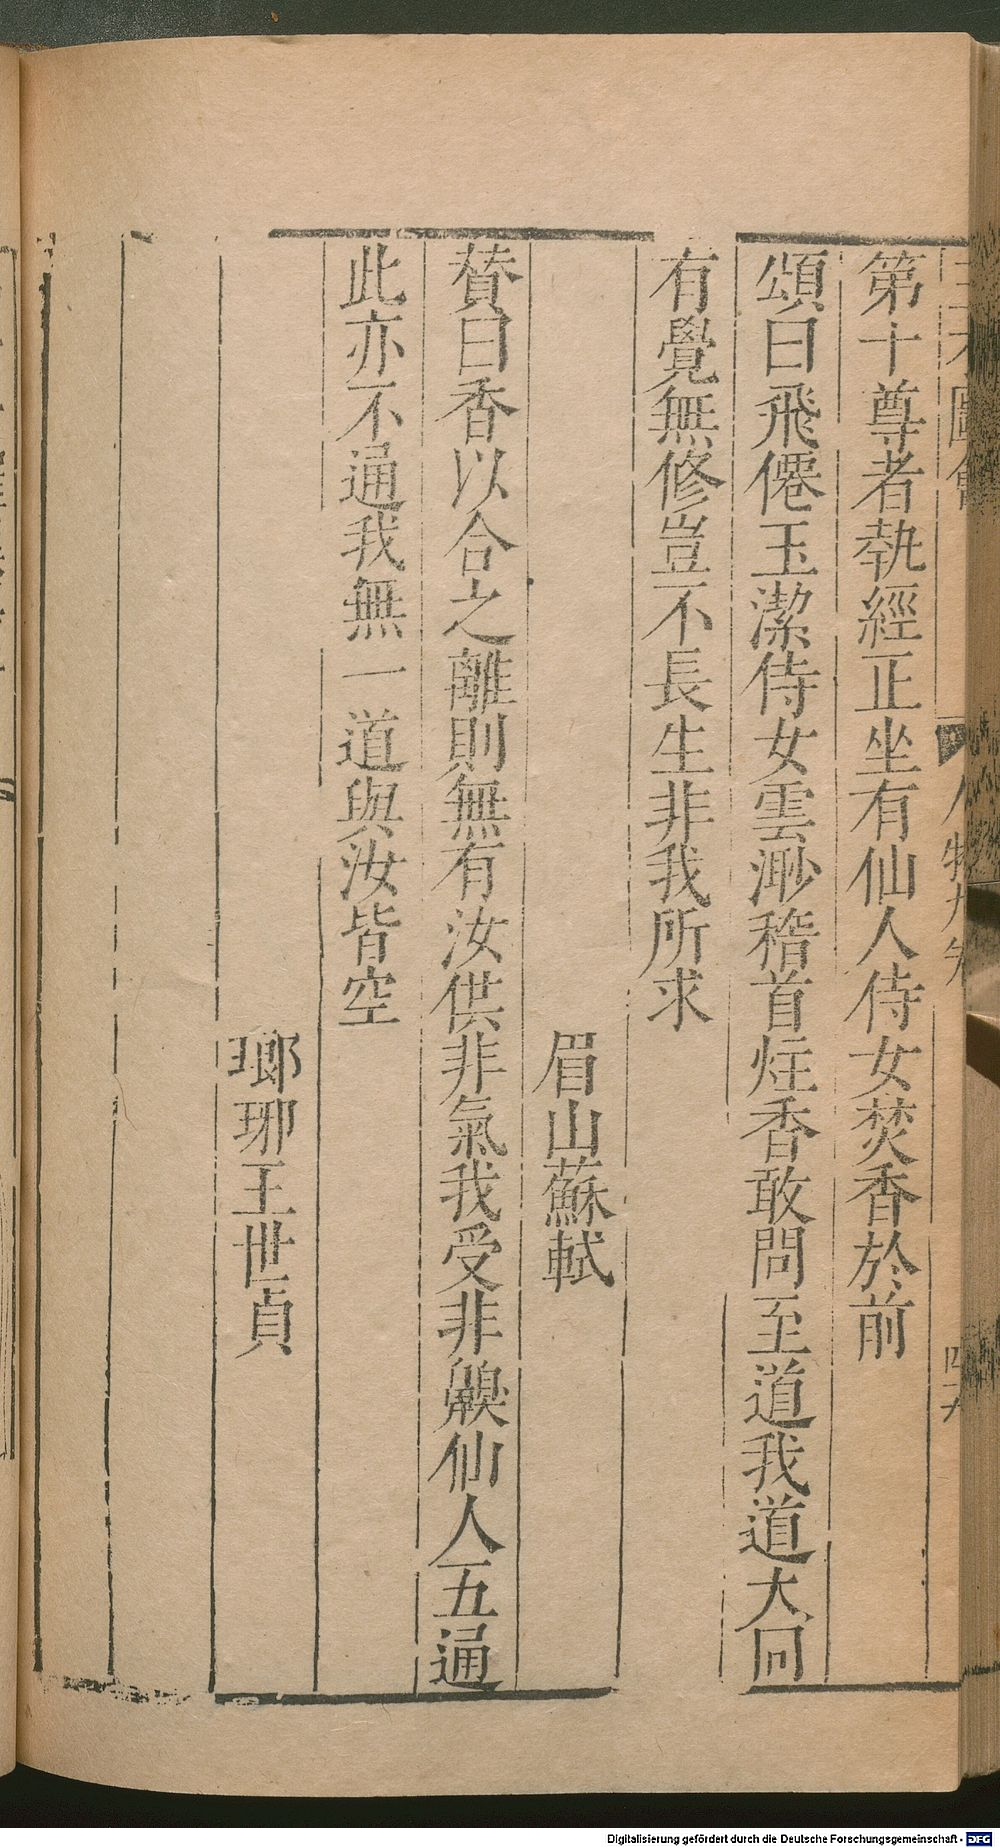 三才圖會 人物九卷
第十尊者執經正坐有仙人侍女焚香於前
頌曰飛僊玉潔侍女雲渺稽首炷香敢問至道我道大同
有覺無修豈不長生非我所求
眉山蘇軾
贊曰香以合之離則無有汝供非氣我受非齅仙人五通
此亦不通我無一道與汝皆空
瑯琊王世貞
Digitalisierung gefördert durch die Deutsche Forschungsgemeinschaft - DFG